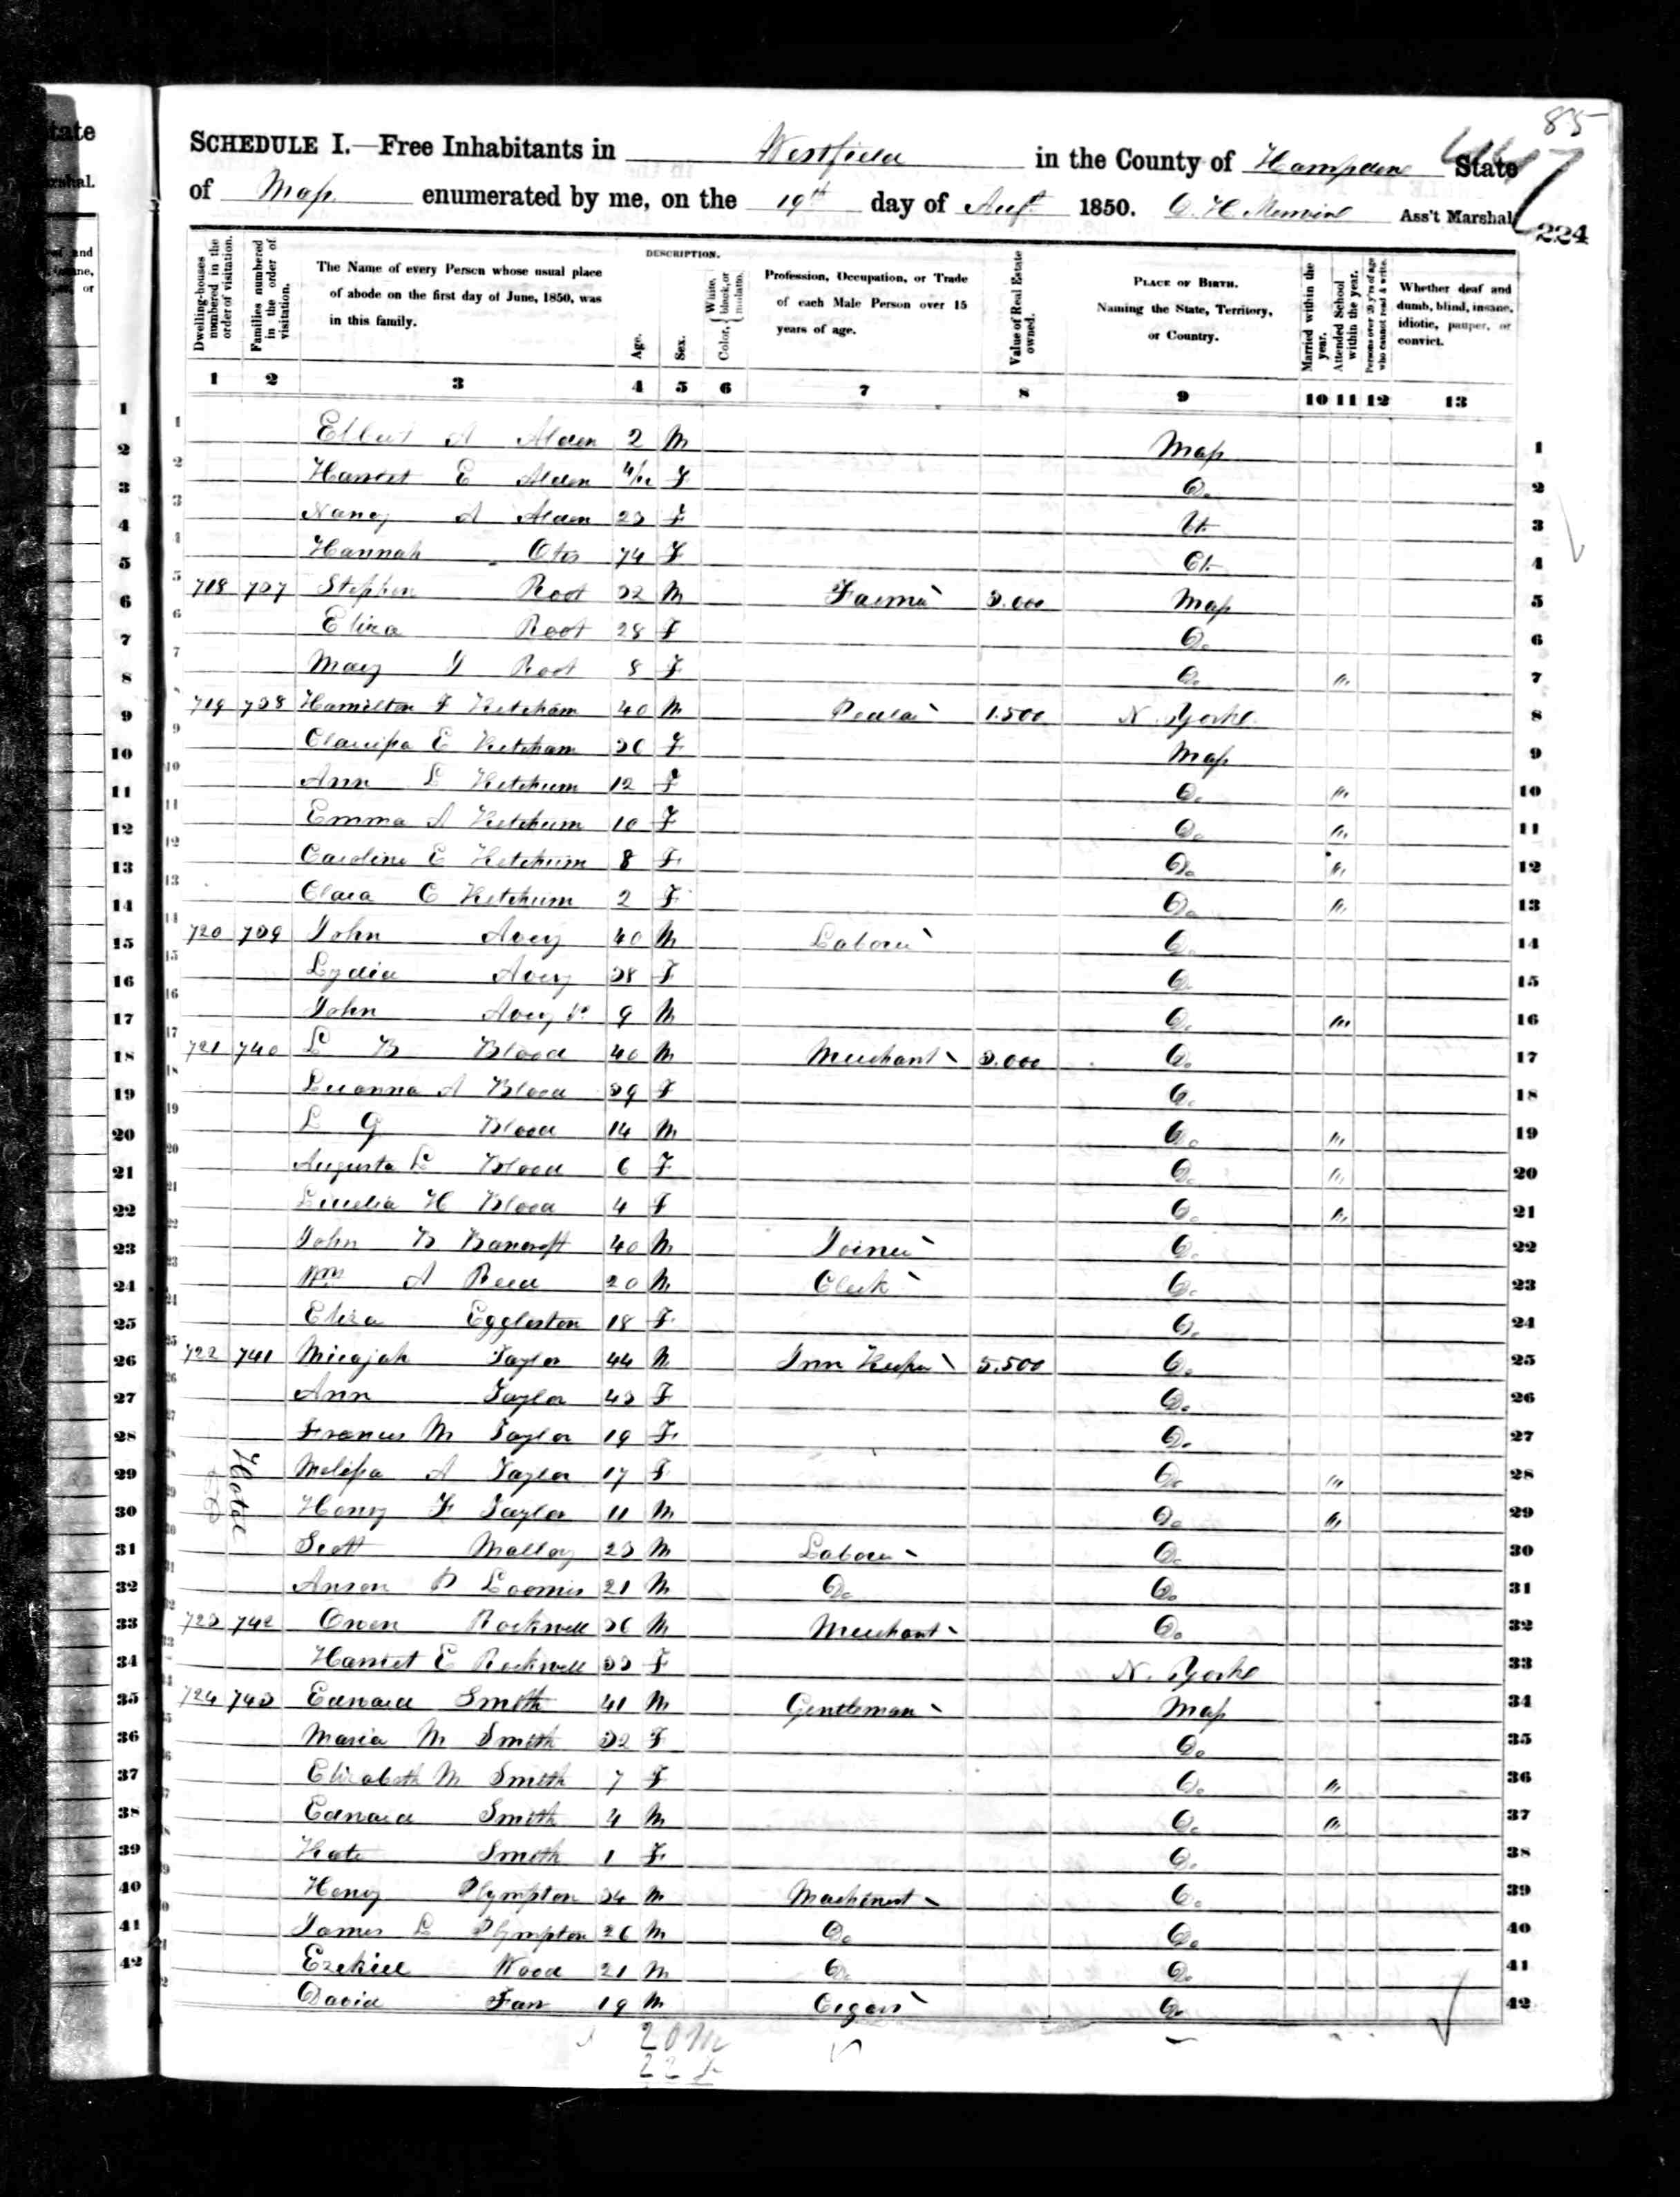 85
SCHEDULE I.—Free Inhabitants in Westfield in the County of Hampden State
of Mass. enumerated by me, on the 19th day of Augt. 1850. Ass't Marshal
224
Dwelling-houses numbered in the order of visitation.
Families numbered in the order of visitation.
The Name of every Person whose usual place of abode on the first day of June, 1850, was in this family.
DESCRIPTION.
Age.
Sex.
Color, { White, black, or mulatto.
Profession, Occupation, or Trade of each Male Person over 15 years of age.
Value of Real Estate owned.
PLACE OF BIRTH. Naming the State, Territory, or Country.
Married within the year.
Attended School within the year.
Persons over 20 y'rs of age who cannot read & write.
Whether deaf and dumb, blind, insane, idiotic, pauper, or convict.
1 2 3 4 5 6 7 8 9 10 11 12 13
1 Elbert A Alden 2 M Mass 1
2 Harriet E Alden 4/12 F Do 2
3 Nancy A Alden 23 F 3
4 Hannah Otis 74 F Ct. 4
5 718 737 Stephen Root 32 M Farmer 3.000 Mass 5
6 Eliza Root 28 F Do 6
7 Mary J Root 8 F Do " 7
8 719 738 Hamilton F Ketcham 40 M 1.500 N. York 8
9 Clarissa E Ketcham 36 F Mass 9
10 Ann L Ketchum 12 F Do " 10
11 Emma A Ketchum 10 F Do " 11
12 Caroline E Ketchum 8 F Do " 12
13 Clara C Ketchum 2 F Do " 13
14 720 739 John Avery 40 M Laborer Do 14
15 Lydia Avery 38 F Do 15
16 John Avery Jr 9 M Do " 16
17 721 740 L B Blood 40 M Merchant 3.000 Do 17
18 Luanna A Blood 39 F Do 18
19 L G Blood 14 M Do " 19
20 Augusta L Blood 6 F Do " 20
21 Luselia H Blood 4 F Do " 21
22 John B Bancroft 40 M Joiner Do 22
23 Wm A Reed 20 M Clerk Do 23
24 Eliza Eggleston 18 F Do 24
25 722 741 Micajah Taylor 44 M Inn Keeper 5.500 Do 25
26 Ann Taylor 43 F Do 26
27 Frances M Taylor 19 F Do 27
28 Melissa A Taylor 17 F Do " 28
Hotel
29 Henry F Taylor 11 M Do " 29
30 Scott Malloy 23 M Laborer Do 30
31 Anson P Loomis 21 M Do Do 31
32 723 742 Owen Rockwell 36 M Merchant Do 32
33 Harriet E Rockwell 33 F N. York 33
34 724 743 Edward Smith 41 M Gentleman Mass 34
35 Maria M Smith 32 F Do 35
36 Elizabeth M Smith 7 F Do " 36
37 Edward Smith 4 M Do " 37
38 Kate Smith 1 F Do 38
39 Henry Plympton 34 M Machinist Do 39
40 James L Plympton 26 M Do Do 40
41 Ezekiel Wood 21 M Do Do 41
42 David 19 M Do 42
20 M
22 F